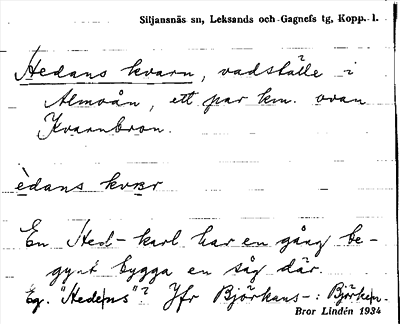 Siljansnäs sn, Leksands och Gagnefs tg, Kopp. l.
Hedans kvarn, vadställe i
Almoån, ett par km. ovan
Kvarnbron.
èdans kvɛr
En Hed-karl har en gång be-
gynt bygga en såg där.
Eg. "Hedens"? Jfr Björkans-: Björken.
Bror Lindén 1934